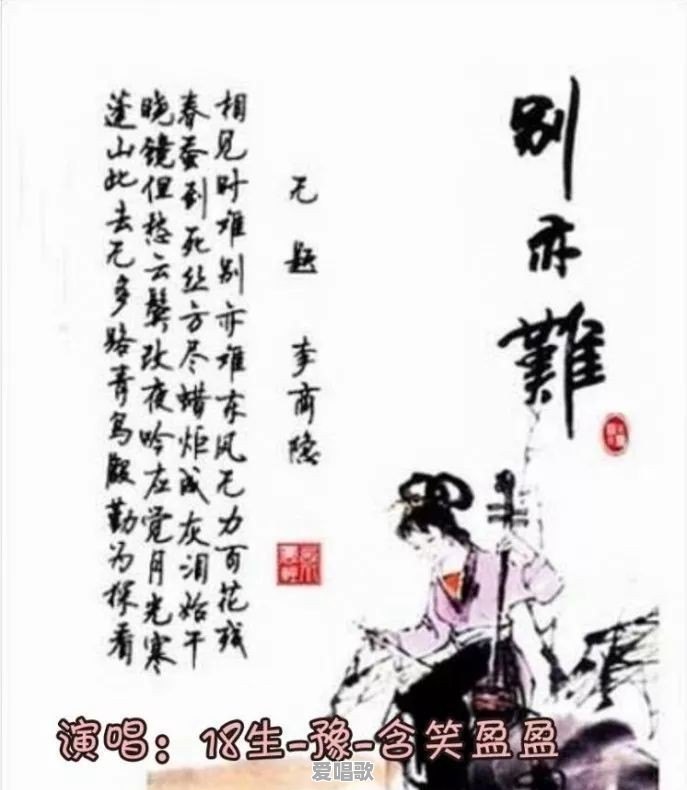 别亦難
无题 李商隐
相见时难别亦难东风无力百花残
春蚕到死丝方尽蜡炬成灰泪始干
晓镜但愁云鬓改夜吟应觉月光寒
蓬山此去无多路青鸟殷勤为探看
演唱：18生-豫-含笑盈盈
爱唱歌